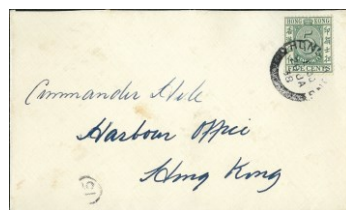 HONG KONG
5
FIVE CENTS
Commander Hole
Harbour Office
Hong Kong
15